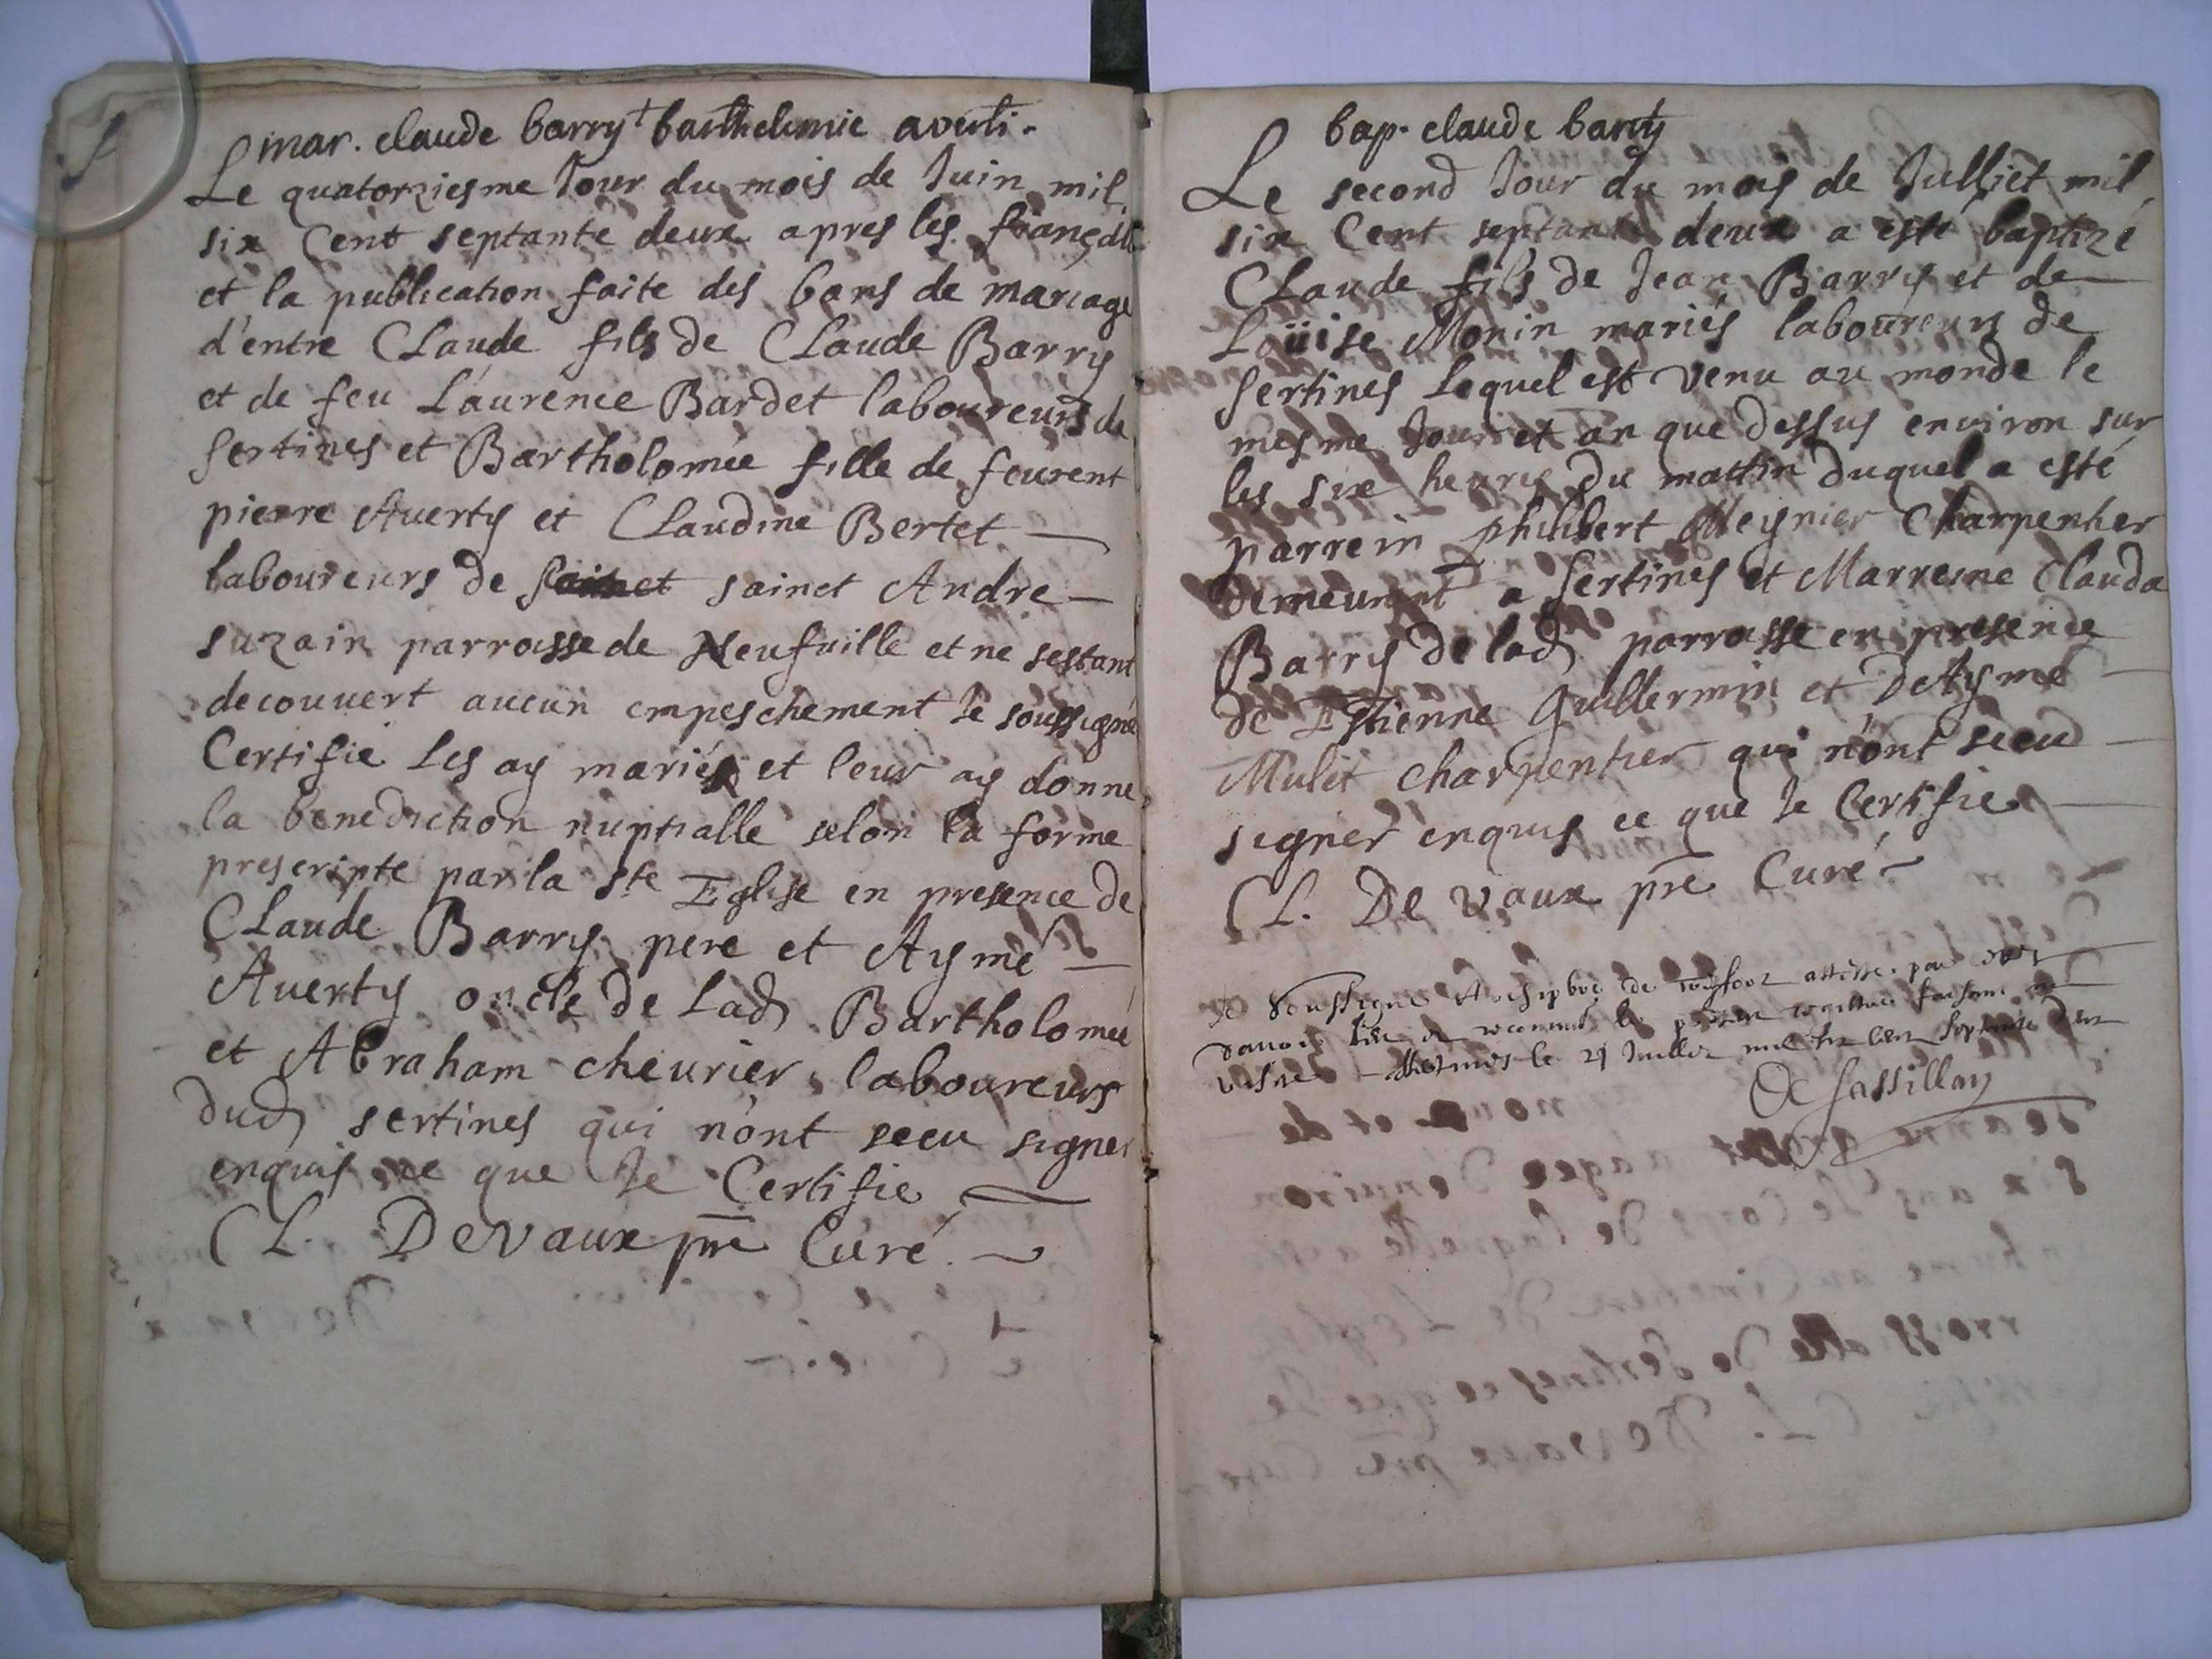 mar. claude barry + barthelemie averti.
Le quatorziesme Jour du mois de Juin mil
six Cent septante deux apres les
et la publication faite des bans de mariage
d'entre CLaude fils de CLaude Barry
et de feu Laurence Bardet laboureurs de
Sertines et Bartholomée fille de feurent
pierre Auerty et CLaudine Bertet
laboureurs de sainct Andre
suzain parroisse de Neufuille et ne sestant
decouuert aucun empeschement Je soussigné
Certifie Les ay mariés et leur ay donne
la benediction nuptialle selon la forme
prescripte par la ste Eglise en presence de
CLaude Barry pere et Aymé
Auerty oncle de Lad Bartholomée
et Abraham cheurier laboureurs
dud sertines qui n'ont sceu signer
enquis ce que Je Certifie
CL. De vaux pre Curé
bap. claude barry
Le second Jour du mois de Julliet mil
six Cent septante deux a esté baptizé
CLaude fils de Jean Barry et de
Loüise Monin mariés laboureurs de
Sertines Lequel est venu au monde le
mesme Jour et an que dessus enuiron sur
les six heures du mattin duquel a esté
parrein philibert Meynier Charpentier
demeurant a Sertines et Marreine Clauda
Barry de lad parroisse en presence
de Estienne Guillermin et D'Aymé
Mulit charpentier qui n'ont sceu
signer enquis ce que Je Certifie
CL. De vaux pre Curé
Je soussigné
le 21 Juillet mil six cent septante deux
De Sassillay